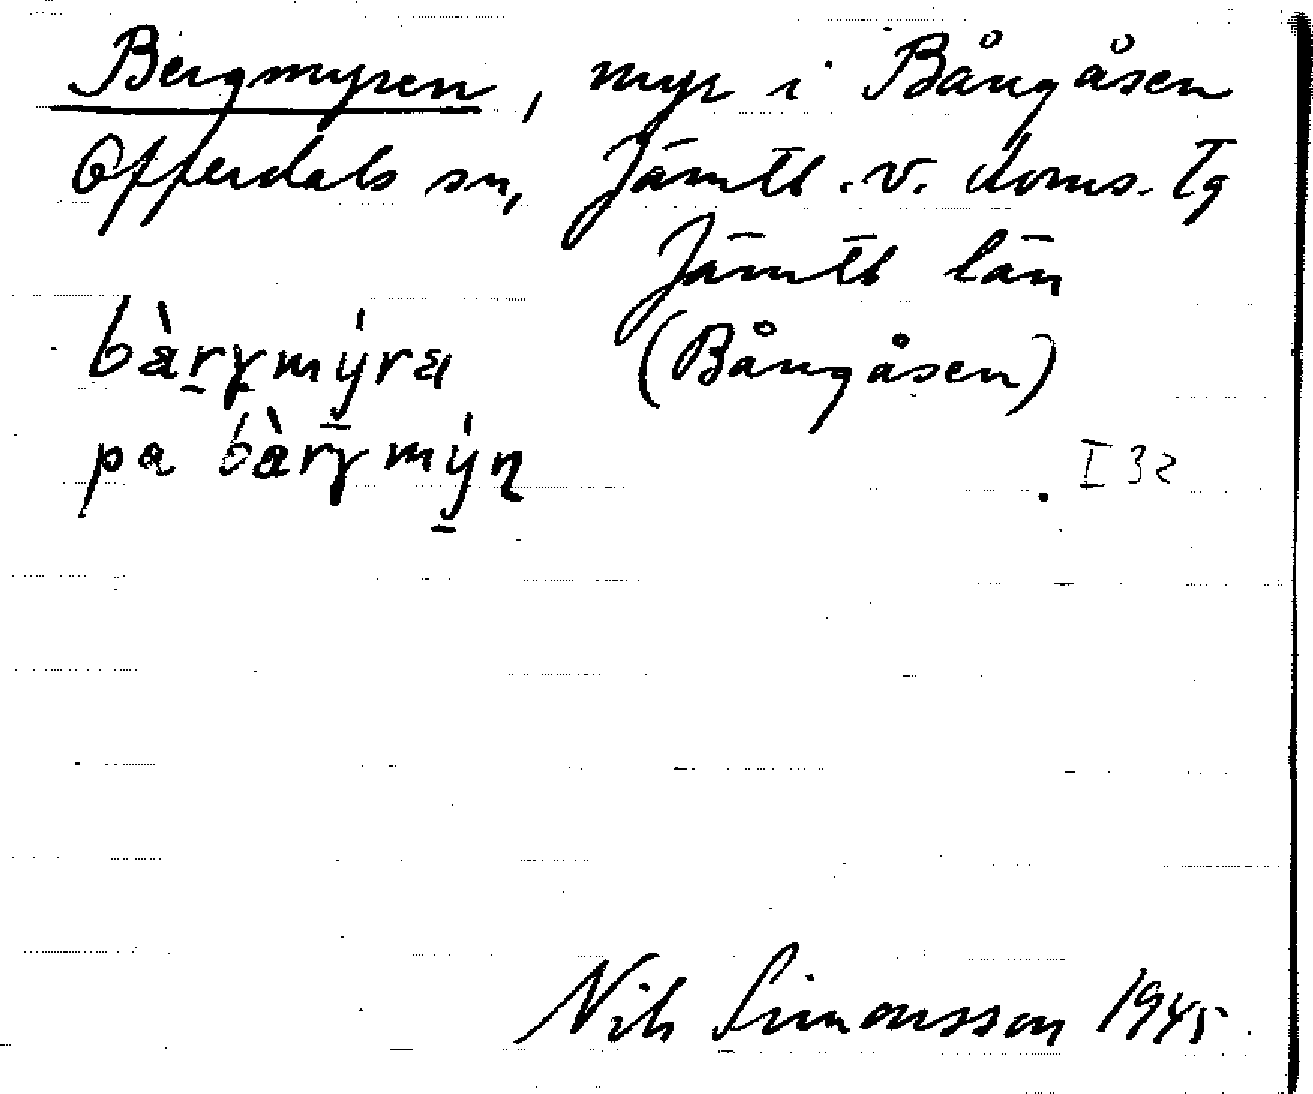 Bergmyren, myr i Bångåsen
Offerdals sn, Jämtl. v. doms. Tg
Jämtl län
bàrγmýra (Bångåsen)
pa bàrγmýn
I 32
Nils Simonsson 1945.